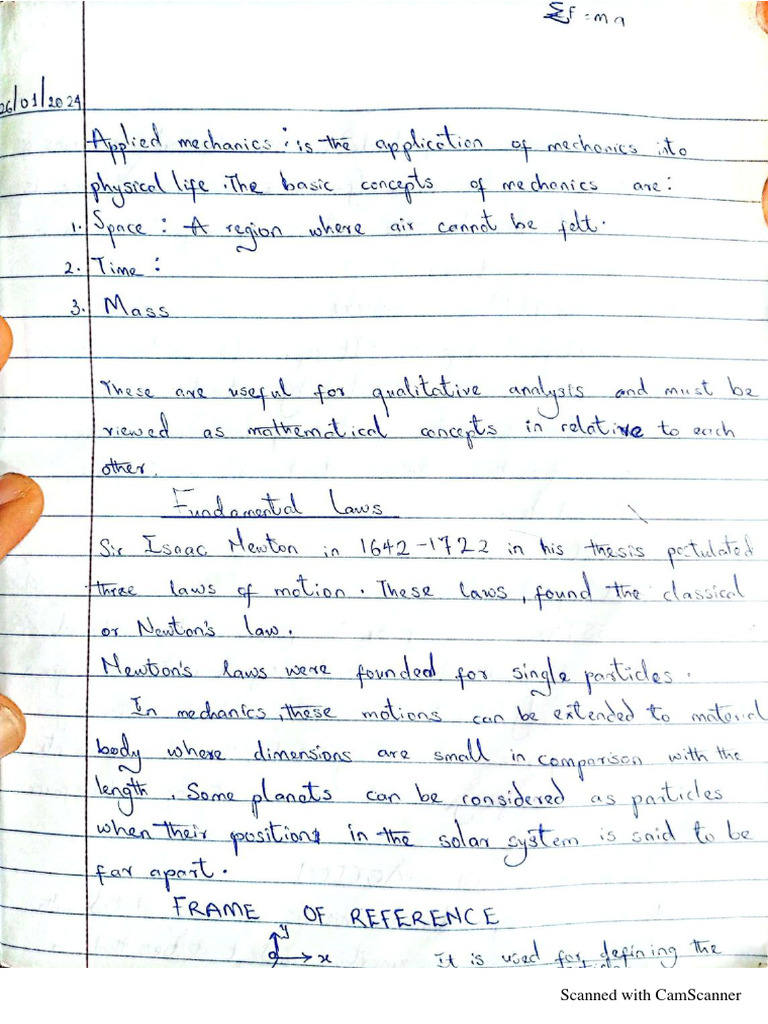 ΣF = ma
26/01/2024
Applied mechanics: is the application of mechanics into
physical life. The basic concepts of mechanics are:
1. Space: A region where air cannot be felt.
2. Time:
3. Mass
These are useful for qualitative analysis and must be
viewed as mathematical concepts in relative to each
other.
Fundamental Laws
Sir Isaac Newton in 1642-1722 in his thesis postulated
three laws of motion. These laws, found the classical
or Newton's law.
Newton's laws were founded for single particles.
In mechanics, these motions can be extended to material
body where dimensions are small in comparison with the
length. Some planets can be considered as particles
when their positions in the solar system is said to be
far apart.
FRAME OF REFERENCE
y
o x It is used for defining the
Scanned with CamScanner